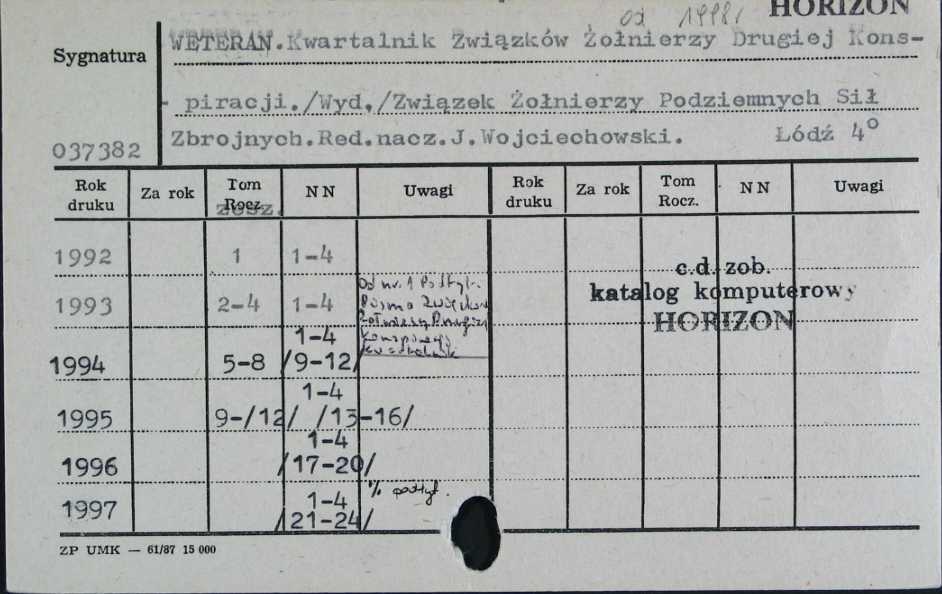 od 1998r HORIZON
WETERAN.Kwartalnik Związków Żołnierzy Drugiej Kons-
Sygnatura
piracji./Wyd,/Związek Żołnierzy Podziemnych Sił
Zbrojnych.Red.nacz.J.Wojciechowski. Łódź 4°
037382
Rok druku Za rok Tom Rocz. zesz. N N Uwagi Rok druku Za rok Tom Rocz. N N Uwagi
1992 1 1-4
c.d. zob.
Od nr. 1 Podtyt.
katalog komputerowy
1993 2-4 1-4 Pismo Związków
HORIZON
Żołnierzy Drugiej
Konspiracji
1-4
kwartalnik
1994 5-8 /9-12/
1-4
1995 9-/12/ /13-16/
1-4
1996 /17-20/
% podtyt.
1-4
1997 /21-24/
ZP UMK — 61/87 15 000